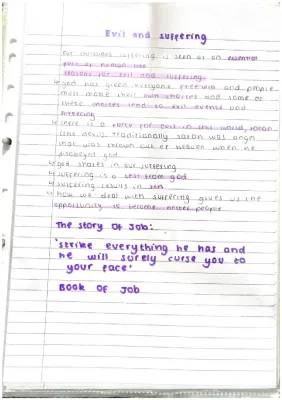 Evil and suffering
For Christians suffering is seen as an essential
part of human life
reasons for evil and suffering
↳ god has given everyone free will and people
must make their own choices and some of
these choices lead to evil events and
suffering
↳ there is a force for evil in this world, satan
(the devil). Traditionally satan was an angel
that was thrown out of heaven when he
disobeyed god
↳ god shares in our suffering
↳ suffering is a test from god
↳ suffering results in
↳ how we deal with suffering gives us the
opportunity to become better people
The story of Job:
'strike everything he has and
he will surely curse you to
your face'
BOOK OF JOB